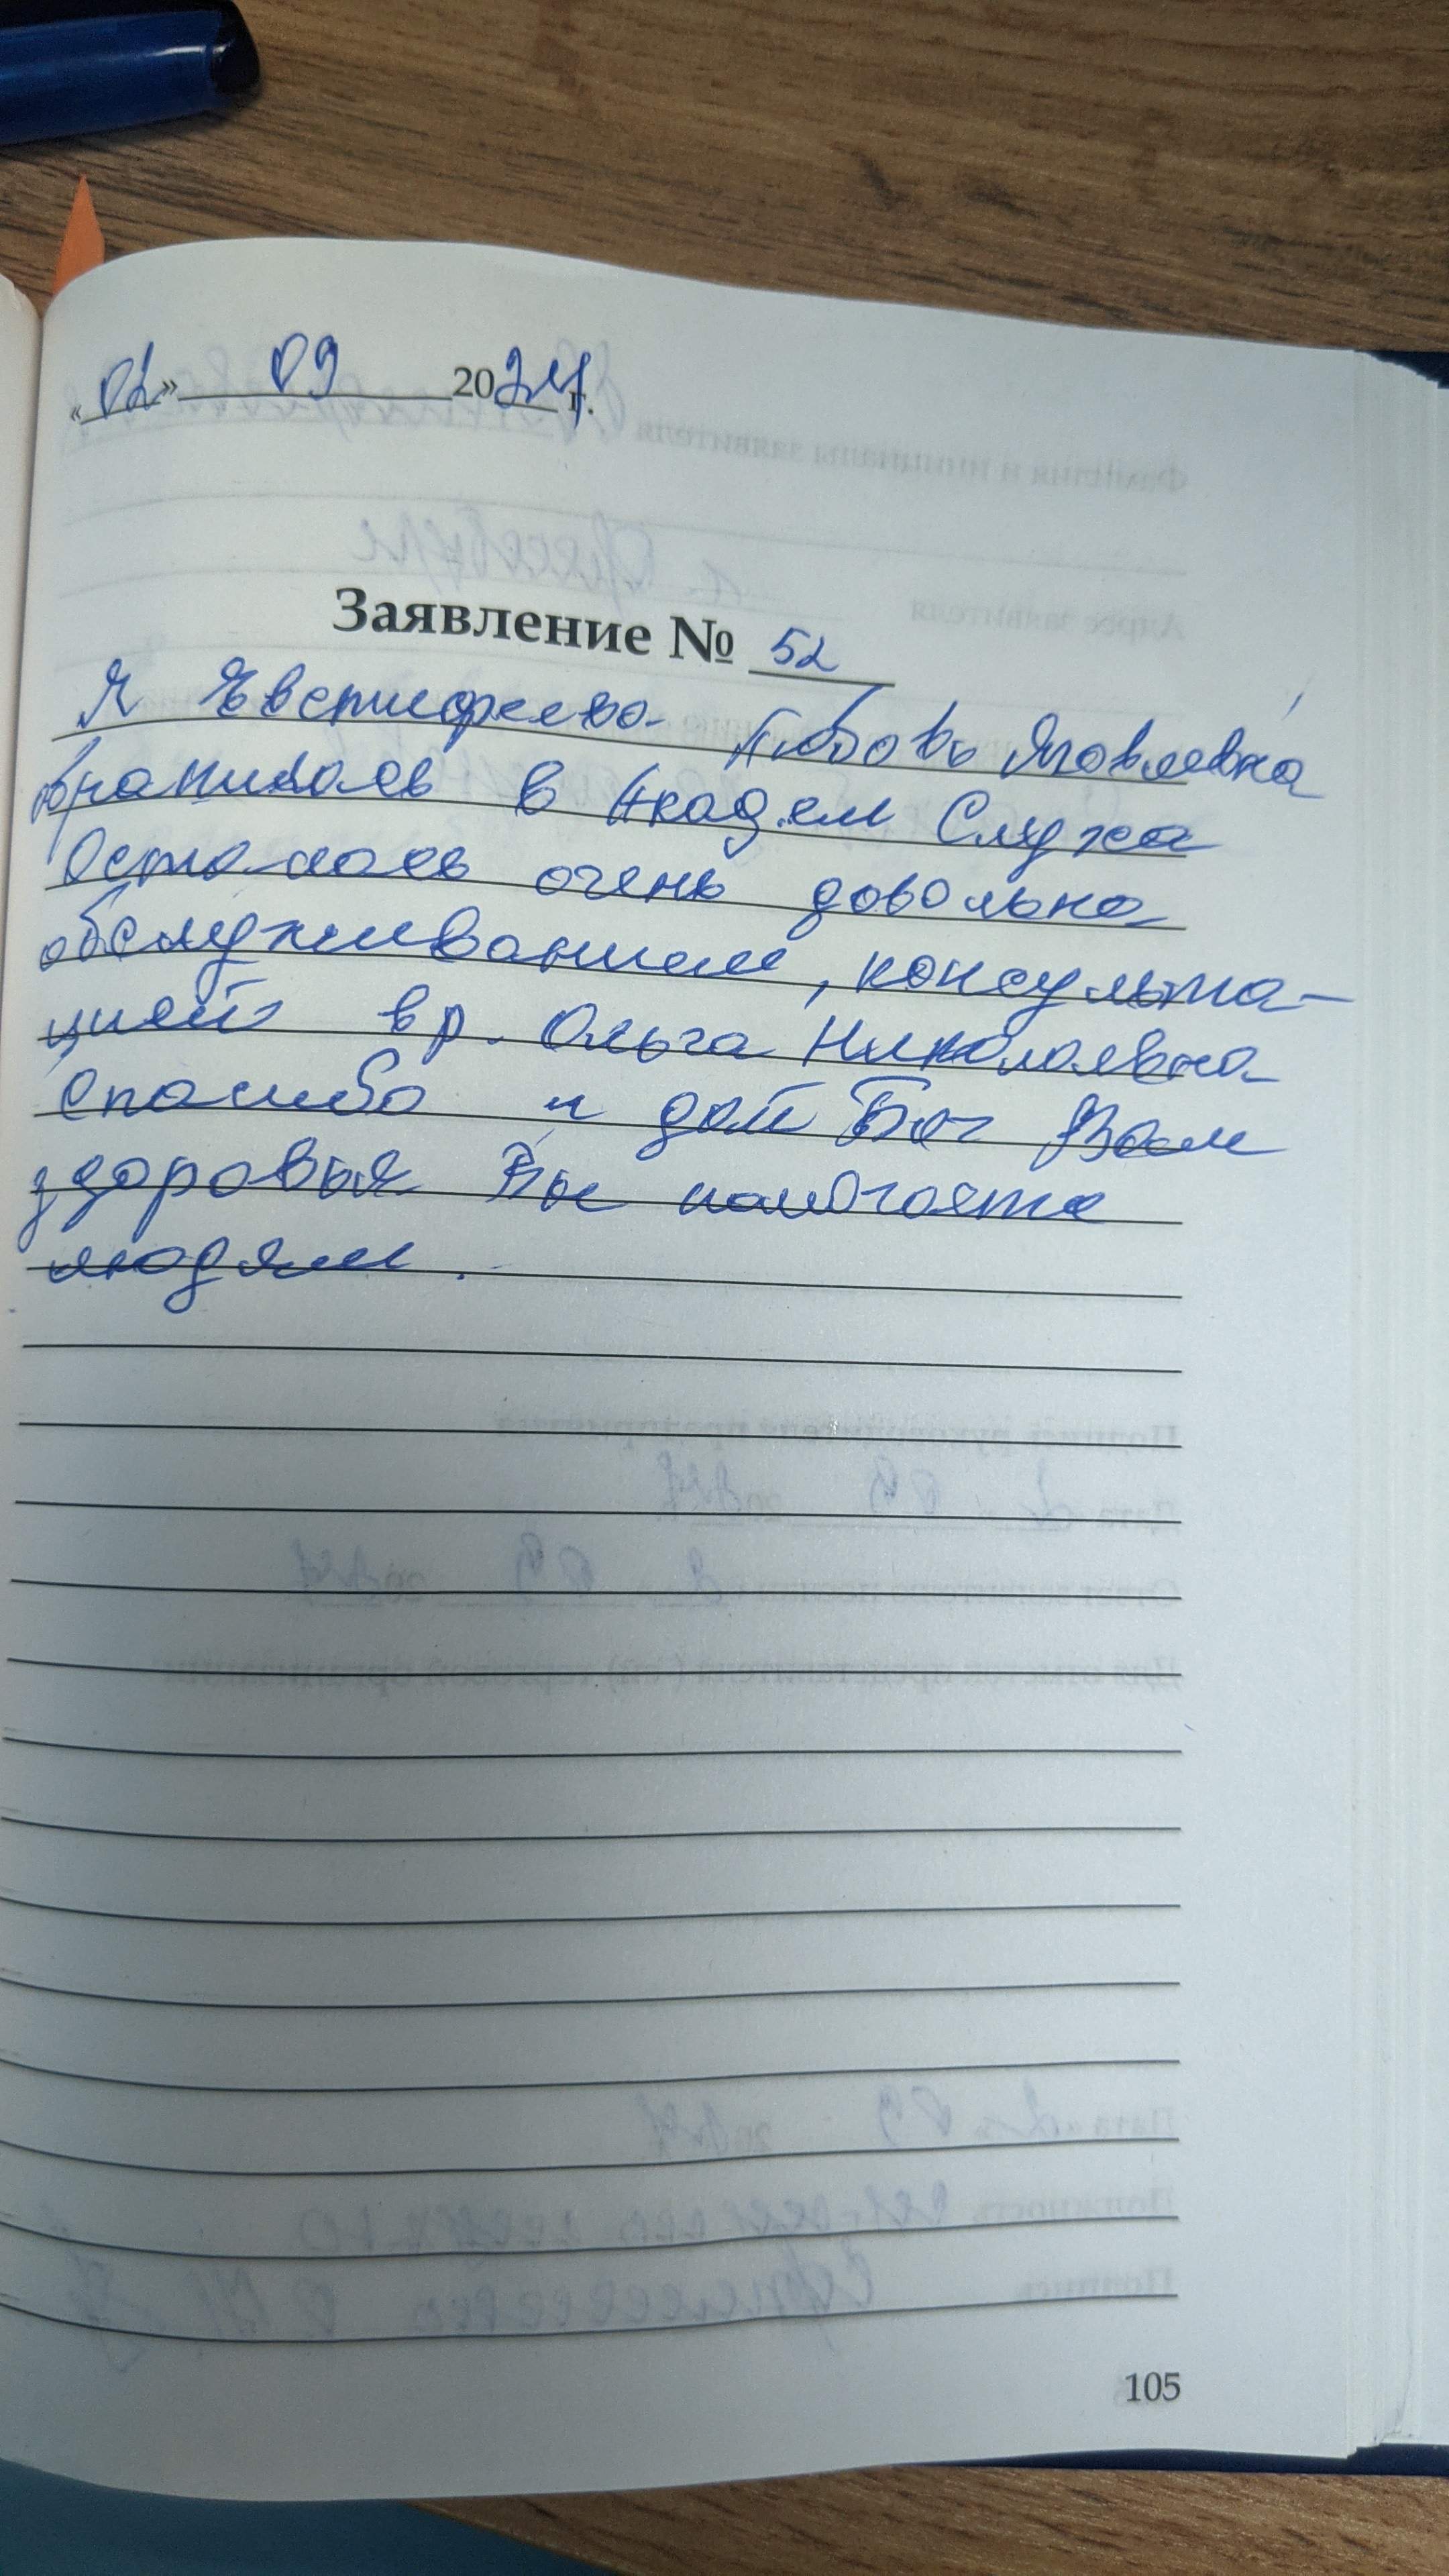 «02» 09 2024 г.
Заявление № 52
Я Евстифеева Любовь Яковлевна
обратилась в Академ Слуха
Осталась очень довольна
обслуживанием, консульта-
цией вр. Ольга Николаевна
Спасибо и дай Бог Вам
здоровья Вы помогаете
людям.
105